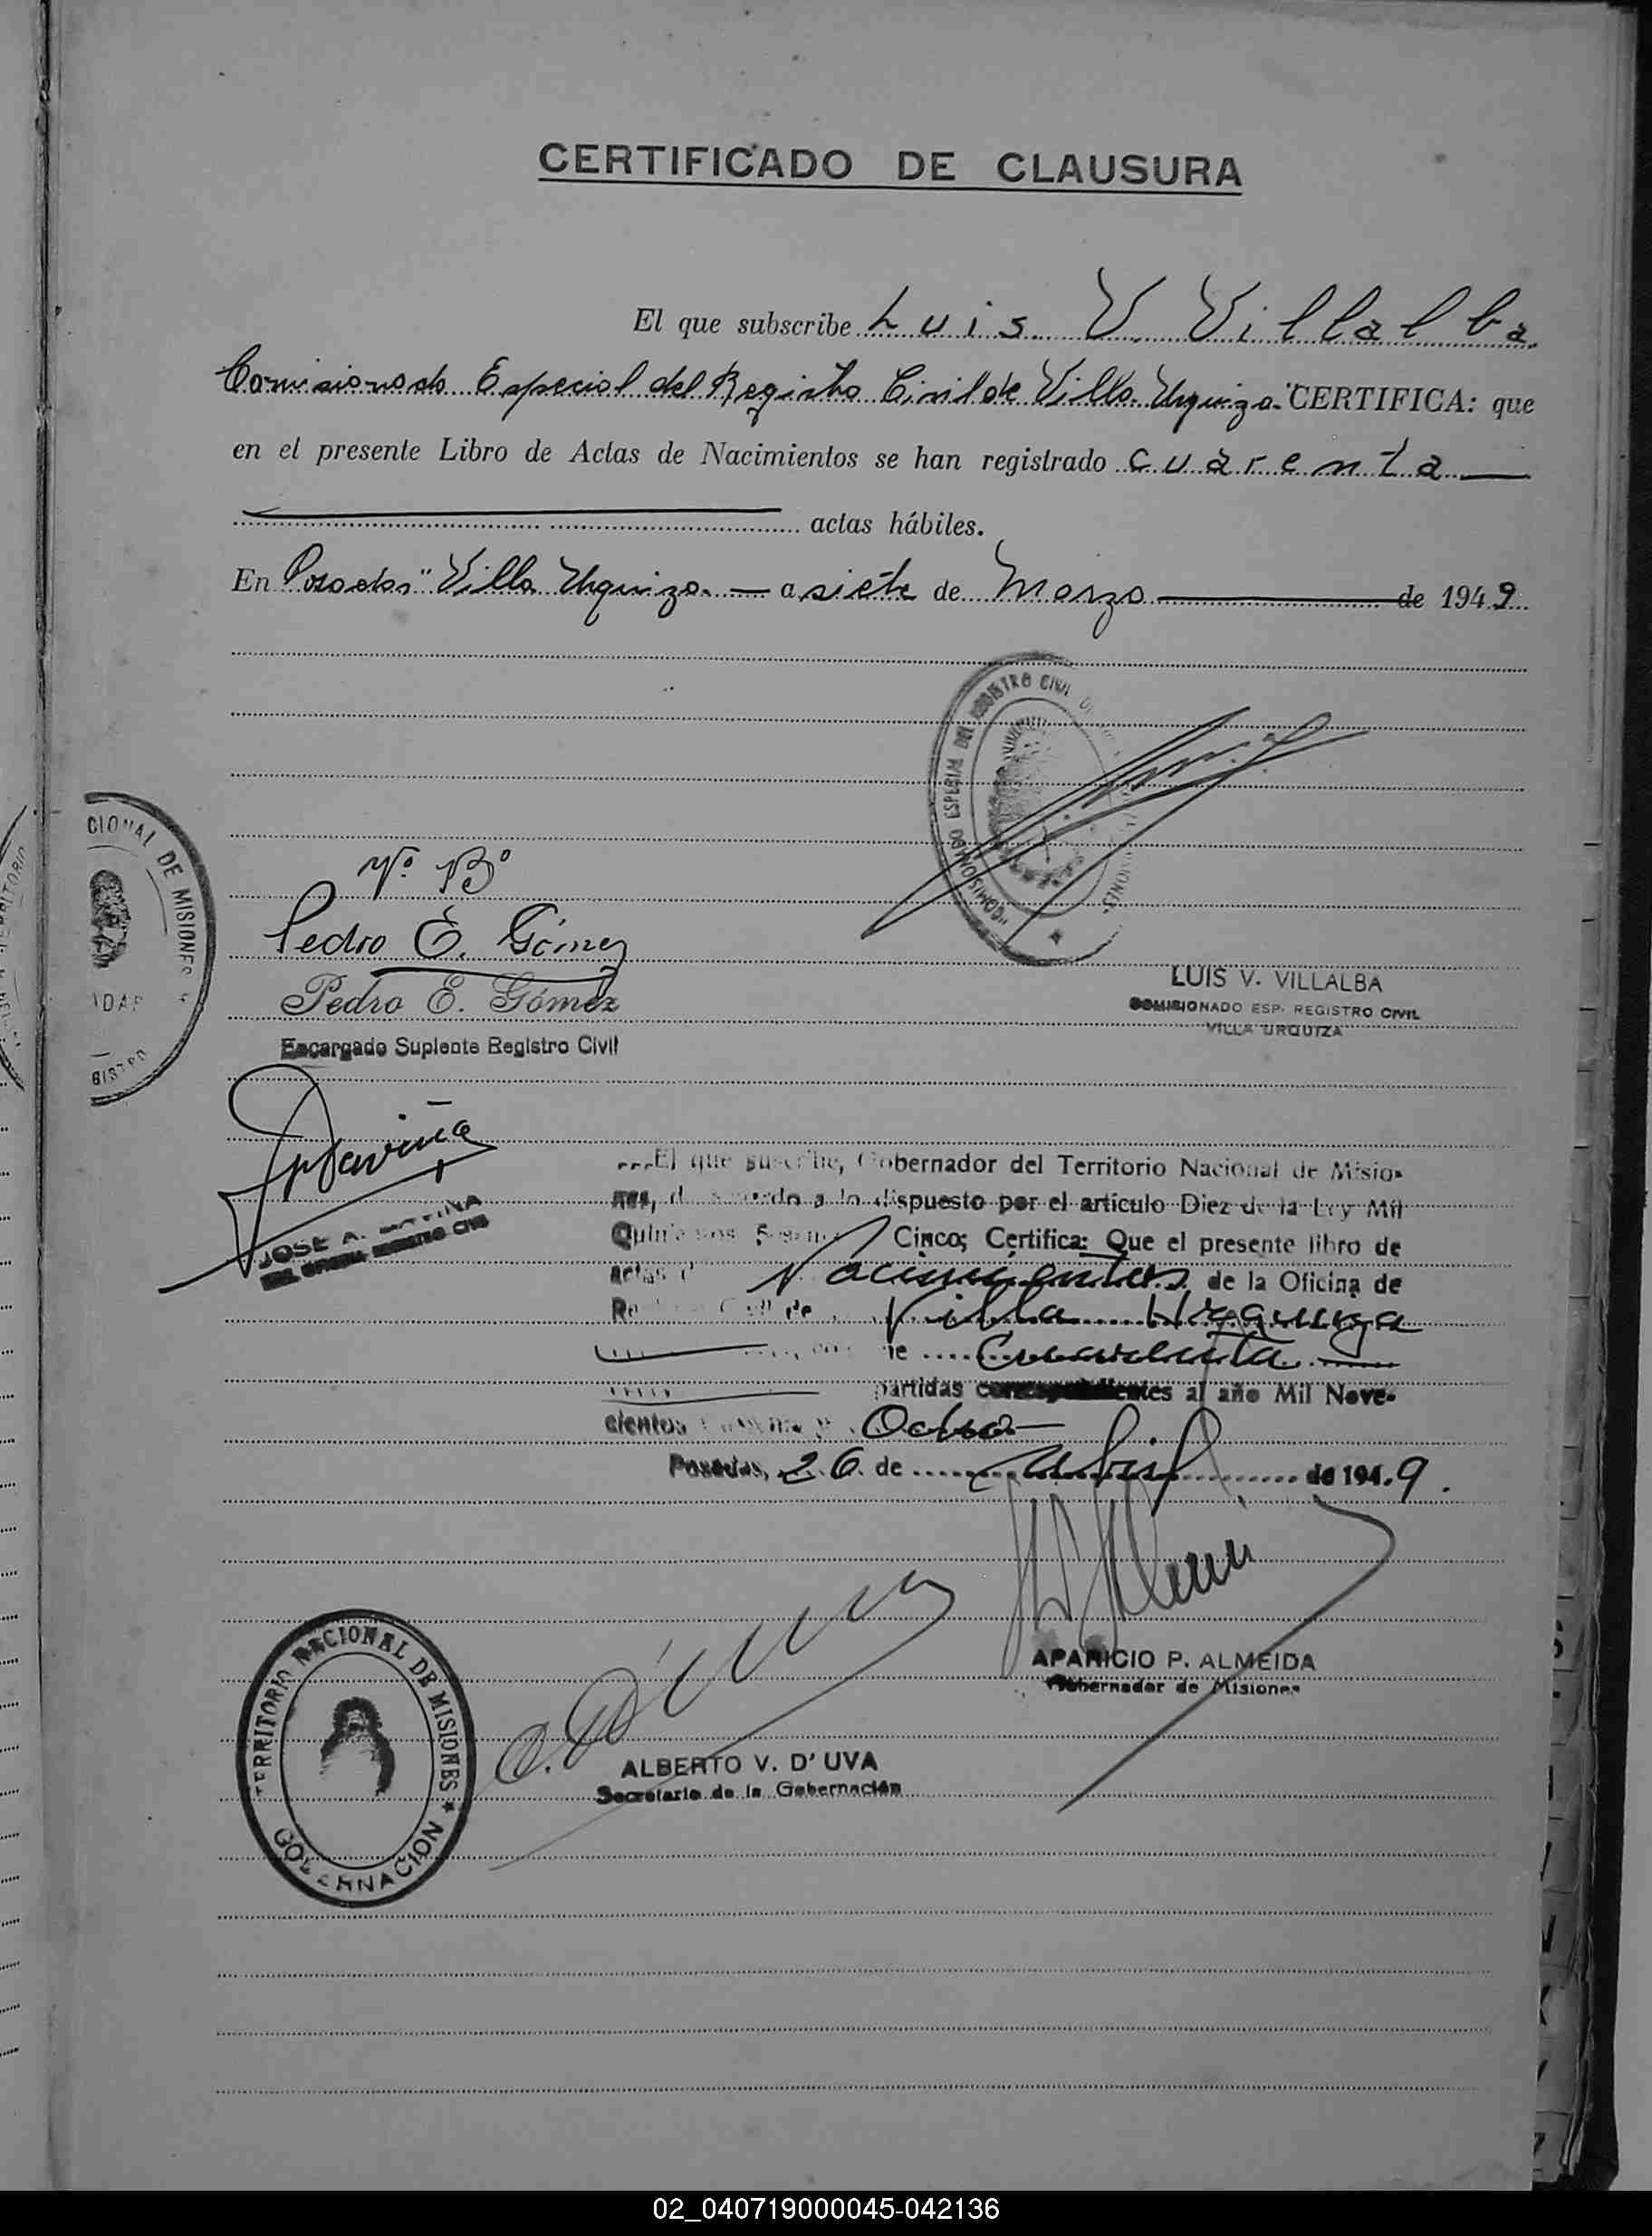 CERTIFICADO DE CLAUSURA
El que subscribe Luis V. Villalba
Comisionado Especial del Registro Civil de Villa Urquiza CERTIFICA: que
en el presente Libro de Actas de Nacimientos se han registrado cuarenta
actas hábiles.
En Posadas "Villa Urquiza. a siete de Marzo de 1949
COMISIONADO ESPECIAL DEL REGISTRO CIVIL
CIONAL DE MISIONES
Vº Bº
Pedro E. Gómez
Pedro E. Gómez
Encargado Suplente Registro Civil
LUIS V. VILLALBA
COMISIONADO ESP. REGISTRO CIVIL
VILLA URQUIZA
JOSE A.
REGISTRO CIVIL
El que suscribe, Gobernador del Territorio Nacional de Misio-
nes, de acuerdo a lo dispuesto por el artículo Diez de la Ley Mil
Quinientos Cinco; Certifica: Que el presente libro de
actas de Nacimientos de la Oficina de
Registro Civil de Villa Urquiza
Cuarenta
partidas correspondientes al año Mil Nove-
cientos Ocho
Posadas, 26 de Abril de 1949.
APARICIO P. ALMEIDA
Gobernador de Misiones
ALBERTO V. D'UVA
Secretario de la Gobernación
TERRITORIO NACIONAL DE MISIONES
GOBERNACION
02_040719000045-042136